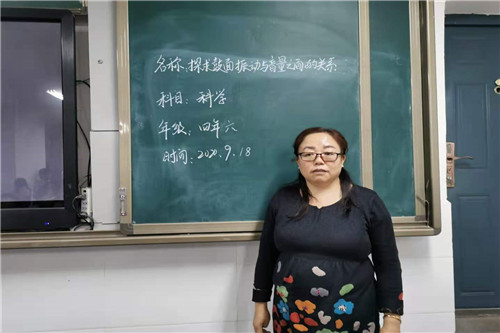 名称:探求鼓面振动与音量之间的关系
科目:科学
年级:四年六
时间:2020.9.18